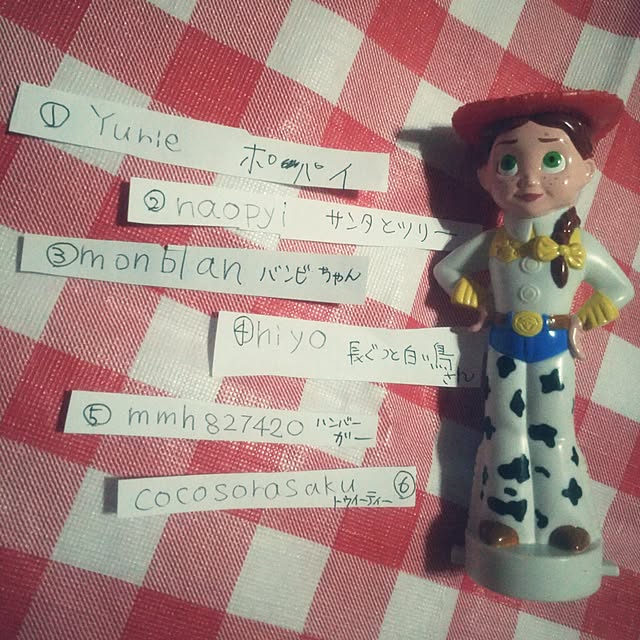 ① Yunie ポパイ
② naopyi サンタとツリー
③ monblan バンビちゃん
④ hiyo 長ぐつと白い鳥
さん
⑤ mmh827420 ハンバー
ガー
cocosorasaku ⑥
トウィーティー